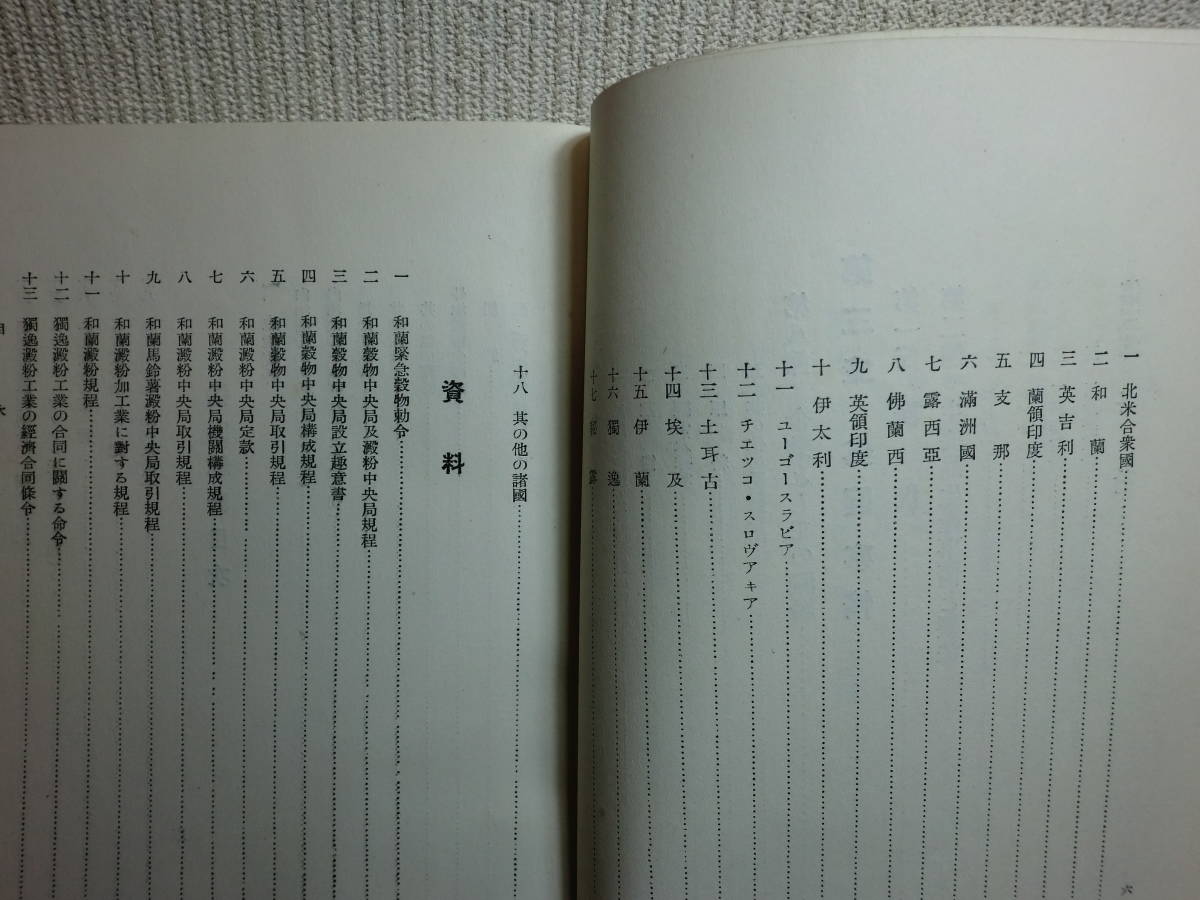 一 北米合衆國
二 和蘭
三 英吉利
四 蘭領印度
五 支那
六 滿洲國
七 露西亞
八 佛蘭西
九 英領印度
十 伊太利
十一 ユーゴースラビア
十二 チエツコ・スロヴアキア
十三 土耳古
十四 埃及
十五 伊蘭
十六 獨逸
十七
六
十八 其の他の諸國
資料
一 和蘭緊急穀物勅令
二 和蘭穀物中央局及澱粉中央局規程
三 和蘭穀物中央局設立趣意書
四 和蘭穀物中央局構成規程
五 和蘭穀物中央局取引規程
六 和蘭澱粉中央局定款
七 和蘭澱粉中央局機關構成規程
八 和蘭澱粉中央局取引規程
九 和蘭馬鈴薯澱粉中央局取引規程
十 和蘭澱粉加工業に對する規程
十一 和蘭澱粉規程
十二 獨逸澱粉工業の合同に關する命令
十三 獨逸澱粉工業の經濟合同條令
目次